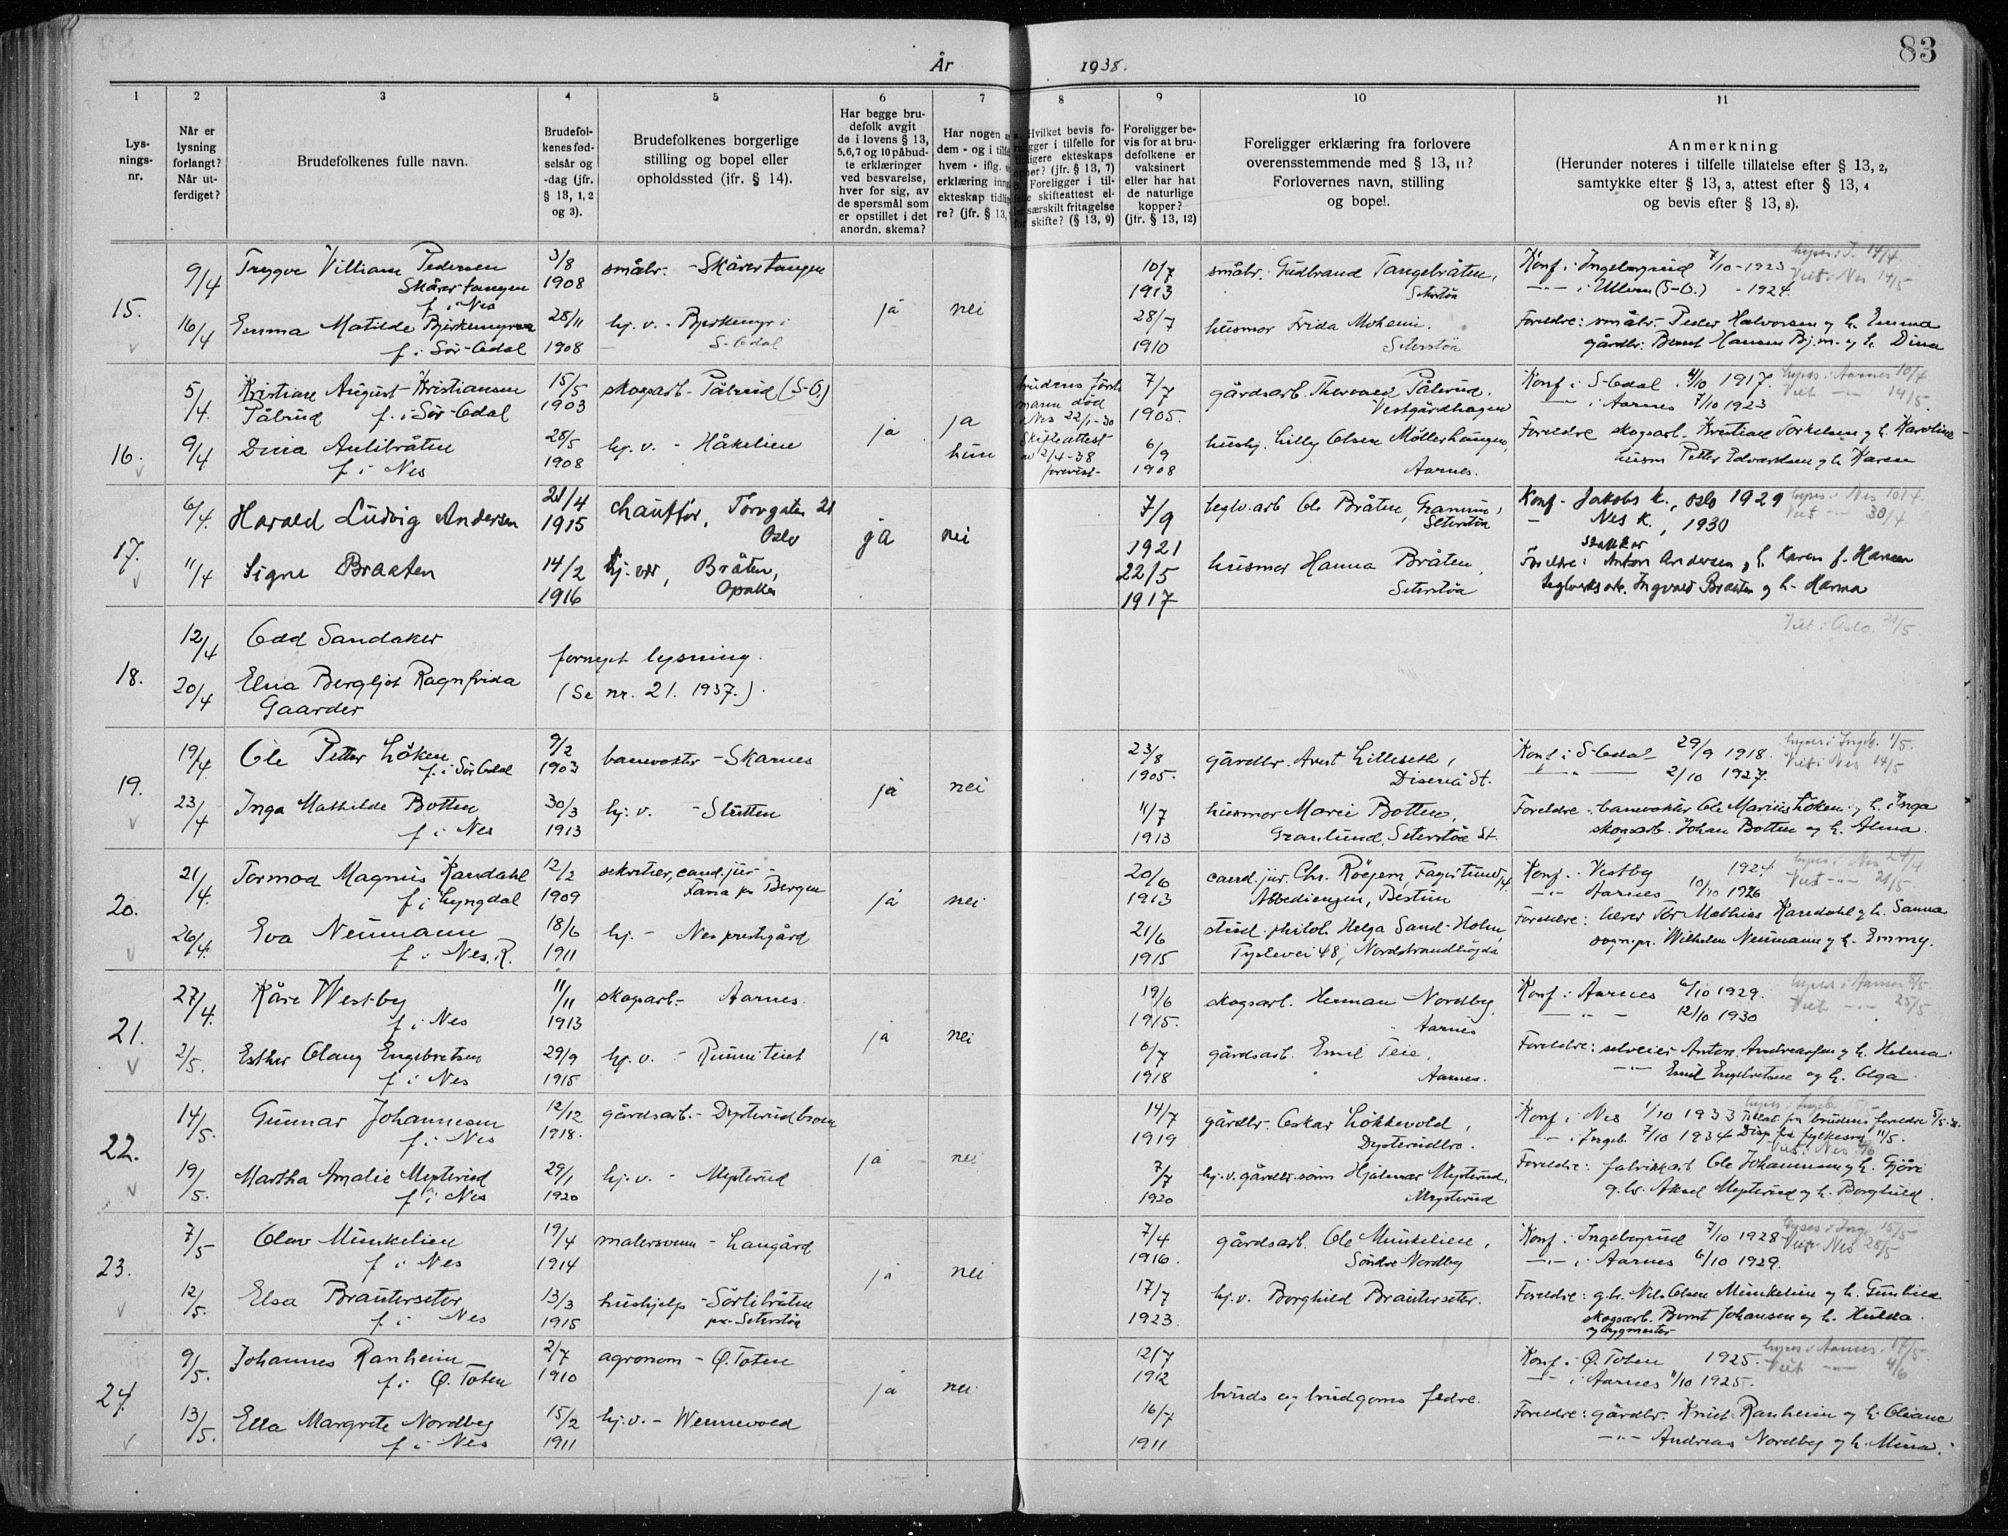 83
År 1938.
1 2 3 4 5 6 7 8 9 10 11
Lys-
nings-
nr.
Når er
lysning
forlangt?
Når ut-
ferdiget?
Brudefolkenes fulle navn.
Brudefol-
kenes fød-
selsår og
-dag (jfr.
§ 13, 1, 2
og 3).
Brudefolkenes borgerlige
stilling og bopel eller
opholdssted (jfr. § 14).
Har begge bru-
defolk avgit
de i lovens § 13,
5,6,7 og 10 påbud-
te erklæringer
ved besvarelse,
hver for sig, av
de spørsmål som
er opstillet i det
anordn. skema?
Har nogen
dem - og i
hvem - ifl.
erklæring
ekteskap
re? (jfr. § 13,
Hvilket bevis fo-
religger i tilfelle for
tidligere ekteskaps
ophør? (jfr. § 13, 7)
Foreligger i til-
felle skifteattest el-
særskilt fritagelse
for skifte? (§ 13, 9)
Foreligger be-
vis for at bru-
defolkene er
vaksinert
eller har hat
de naturlige
kopper?
(jfr. § 13, 12)
Foreligger erklæring fra forlovere
overensstemmende med § 13, 11?
Forlovernes navn, stilling
og bopel.
Anmerkning
(Herunder noteres i tilfelle tillatelse efter § 13, 2,
samtykke efter § 13, 3, attest efter § 13, 4
og bevis efter § 13, 8).
15.
9/4
16/4
Trygve Villiam Pedersen
Skårertangen
f. i Nes
Emma Matilde
f. i Sør-Odal
3/8
1908
28/11
1908
småbr. - Skårertangen
hj. v. -
S-Odal
ja nei
10/7
1913
28/7
1910
småbr. Gudbrand Tangebråten,
Seterstøa
husmor Frida Moheim.
Seterstøa
Konf. i Ingebergrud 7/10-1923
i Ullern (S-O.) - 1924.
Viet i Nes 14/5
Foreldre: småbr. Peder Halvorsen og h. Emma
gårdbr. Bernt Hansen Bj.m. og h. Dina
16.
5/4.
9/4
Kristian August Kristiansen
Pålrud f. i Sør-Odal
Dina Aulibråten
f. i Nes
15/5
1903
28/5
1908
skogsarb. Pålrud (S-O.)
hj. v. - Håkelien
ja
ja
hun
brudens første
mann død
i Nes 22/1-30
Skifteattest
av 2/4-38
forevist-
7/7
1905.
6/9
1908
gårdsarb. Thorvald Pålerud,
Vestgårdhagen
hushj. Lilly Olsen Møllerhaugen,
Aarnes.
Konf. i S-Odal 1/10 1917. lyses i Aarnes 10/4
i Aarnes 7/10 1923 Viet 14/5.
Foreldre skogsarb. Kristian Torkelsen og h. Karoline
husm Petter Edvardsen og h. Karen
17.
6/4.
11/4
Harald Ludvig Andersen
Signe Braaten
21/4
1915
14/2
1916
chauffør, Torvgaten 21
Oslo
hj. vær, Bråten,
Opaker
ja nei
7/9
1921
22/5
1917
teglv.arb. Ole Bråten,
Seterstøa
husmor Hanna Bråten,
Seterstøa
Konf. Jakobs k., Oslo 1929 lyses i Nes 10/4.
Nes k., 1930 Viet 30/4
Foreldre: Anton Andersen og h. Karen f. Hansen
teglverksarb. Ingvald Braaten og h. Hanna
18.
12/4
20/4
Odd Sandaker
Elna Bergljot Ragnfrida
Gaarder
fornyet lysning.
(Se nr. 21. 1937.).
Viet i Oslo. 21/5.
19.
19/4
23/4
Ole Petter Löken
f. i Sør Odal
Inga Mathilde Botten
f. i Nes
9/2
1903
30/3
1913
banevokter - Skarnes
hj. v. - Slutten
ja nei
23/8
1905.
11/7
1913
gårdbr. Arnt Lilleseth,
Disenå St.
husmor Marie Botten,
Granlund, Seterstøa St.
Konf. i S-Odal 29/9 1918. lyses i Ingeb. 1/5.
2/10 1927. Viet i Nes 14/5
Foreldre: banevokter Ole Marius Löken og h. Inga
skogsarb. Johan Botten og h. Alma.
20.
21/4.
26/4.
Tormod Magnus Kandahl
f. i Lyngdal
Eva Neumann
f. i Nes. R.
12/2
1909
18/6
1911
sekretær, cand. jur. -
Fana pr Bergen
hj. - Nes prestgård
ja nei
20/6
1913
21/6
1915
cand. jur. Chr. Röyem,
Abbediengen, Bestum
stud. philol. Helga Sand-Holm,
48, Nordstrandhögda
Konf. Vestby 1924 lyses i Nes 24/4
Aarnes 10/10 1926 Viet 21/5.
Foreldre: lærer Tor Mathias Kandahl og h. Sanna
sogn.pr. Wilhelm Neumann og h. Emmy.
21.
27/4.
2/5.
Kåre Westby
f. i Nes
Esther Olaug Engebretsen
f. i Nes
11/11
1913
29/9
1915
skogsarb. - Aarnes.
hj. v. - Runniteiet
ja nei
19/6
1915.
6/7
1918
skogsarb. Herman Nordby,
Aarnes
gårdsarb. Emil Teie,
Aarnes.
Konf. i Aarnes 6/10 1929. lyses i Aarnes 8/5.
12/10 1930 Viet 25/5.
Foreldre: selveier Anton Andreassen og h. Helma
Emil Engebretsen og h. Olga
22.
14/5.
19/5.
Gunnar Johannesen
f. i Nes
Martha Amalie Mysterud
f. i Nes
12/12
1918.
29/1
1920
gårdsarb. - Dysterudbroen
hj. v. - Mysterud
ja nei
14/7
1919
7/7
1920
gårdbr. Oskar Løkkevold,
Dysterudbro.
hj. v. gårdbr.sønn Hjalmar Mysterud,
Mysterud
Konf. i Nes 1/10 1933 Tillat. fra brudens foreldre
i Ingeb. 7/10 1934 Disp. fra fylkesm. 11/5.
Foreldre: fabrikkarb. Ole Johannesen og h.
g.br. Aksel Mysterud og h. Borghild.
23.
7/5
12/5.
Olav Minkelien
f. i Nes
Elsa Brauterseter
f. i Nes
19/4
1914
13/3
1915
malersvenn - Langård
hushjelp - Sørlibråten
pr. Seterstøa
ja nei
7/4
1916.
17/7
1923.
gårdsarb. Ole Minkelien,
Søndre Nordby
hj. v. Borghild Brauterseter.
Konf. i Ingebergrud 7/10 1928 lyses i Ing. 15/5
i Aarnes 6/10 1929. Viet Nes 28/5
Foreldre: g.br. Nils Olsen Minkelien og h. Gunhild
skogsarb. Bernt Johansen og h. Hulda.
og bygmester
24.
9/5.
13/5.
Johannes Ranheim
f. i Ø. Toten
Ella Margrete Nordby
f. i Nes
2/7
1910
15/2
1911
agronom - Ø. Toten
hj. v. - Wennevold
ja nei
12/7
1912
16/7
1911
bruds og brudgoms fedre.
Konf. i Ø. Toten 1925. lyses i Aarnes 17/5.
i Aarnes 11/10 1925. Viet 4/6
Foreldre: gårdbr. Knut Ranheim og h. Oliane
Andreas Nordby og h. Mina.